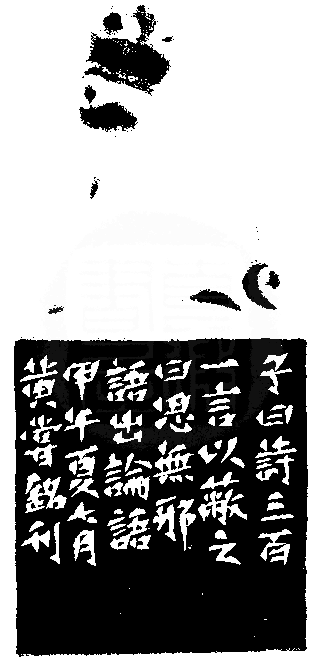 子曰詩三百
一言以蔽之
曰思無邪
語出論語
甲午夏六月
黃嘗銘刊